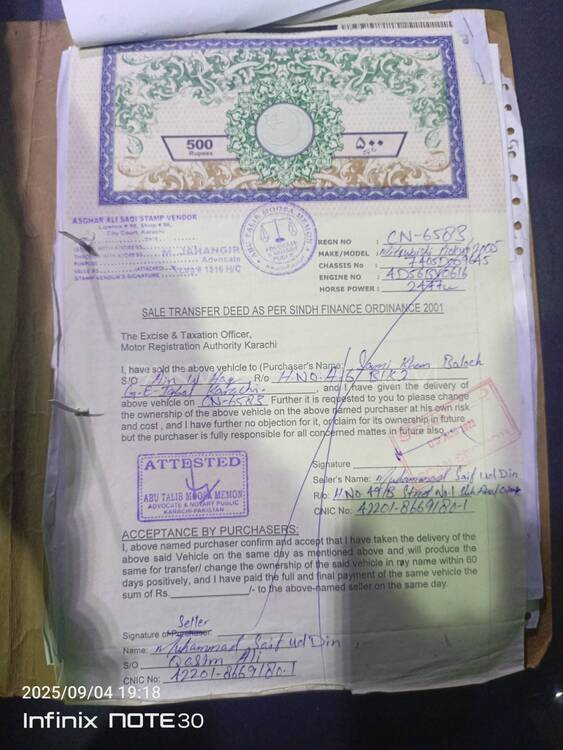 500
Rupees
۵۰۰
ASGHAR ALI SADI STAMP VENDOR
City Court, Karachi
M. JAHANGIR
Advocate
ABU TALIB MOOSA MEMON
REGN NO : CN-6583
MAKE/MODEL : 2005
CHASSIS No :
ENGINE NO :
HORSE POWER : 2477cc
SALE TRANSFER DEED AS PER SINDH FINANCE ORDINANCE 2001
The Excise & Taxation Officer,
Motor Registration Authority Karachi
I, have sold the above vehicle to (Purchaser's Name: Khan Baloch
S/O R/o H.NO.
Karachi. , and I have given the delivery of
above vehicle on CN-6583 Further it is requested to you to please change
the ownership of the above vehicle on the above named purchaser at his own risk
and cost , and I have further no objection for it, or claim for its ownership in future
but the purchaser is fully responsible for all concerned mattes in future also.
ATTESTED
ABU TALIB MOOSA MEMON
ADVOCATE & NOTARY PUBLIC
KARACHI-PAKISTAN
Signature
Seller's Name: Muhammad Saif ud Din
R/o: H.NO 49/B Street No.1
CNIC No: 42201-8669180-1
ACCEPTANCE BY PURCHASERS:
I, above named purchaser confirm and accept that I have taken the delivery of the
above said Vehicle on the same day as mentioned above and will produce the
same for transfer/ change the ownership of the said vehicle in my name within 60
days positively, and I have paid the full and final payment of the same vehicle the
sum of Rs. /- to the above-named seller on the same day.
Seller
Signature of Purchaser:
Name: Muhammad Saif ud Din
S/O Qasim Ali
CNIC No: 42201-8669180-1
2025/09/04 19:18
Infinix NOTE30